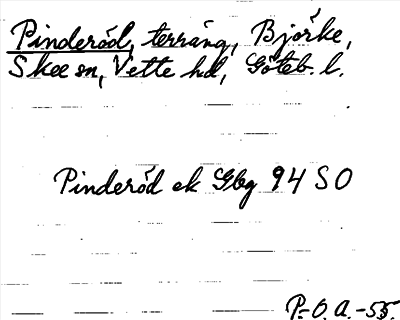 Pinderöd, terräng, Björke,
Skee sn, Vette hd, Göteb. l.
Pinderöd ek Gbg 94 SO
P.-O. A. -55.